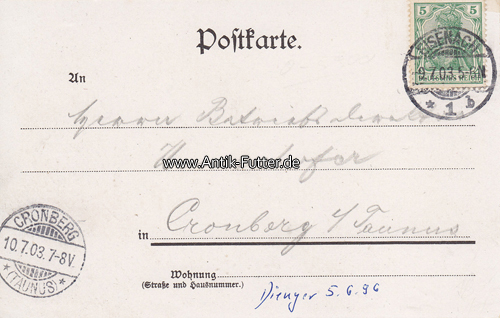 Postkarte.
5 5
EISENACH
9.7.03. 5-6N
* 1 b
An
Herrn
www.Antik-Futter.de
in Cronberg i/Taunus
CRONBERG
10.7.03. 7-8V.
*(TAUNUS)*
Wohnung
(Straße und Hausnummer.)
Dienger 5.6.96